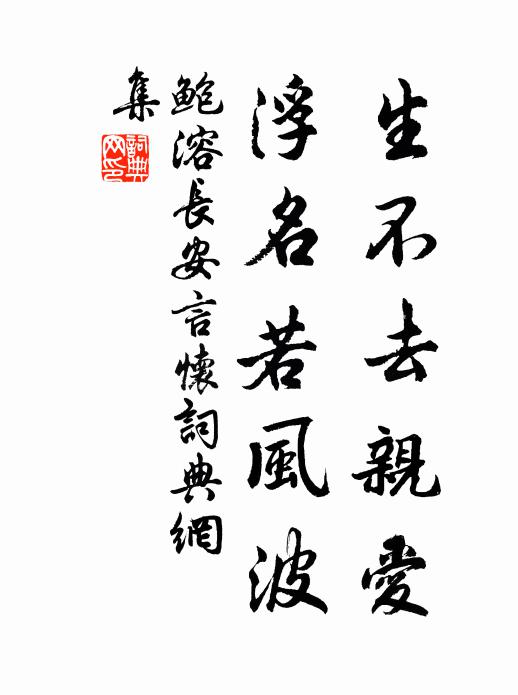 生不去親愛
浮名若風波
鲍溶長安言懷詞典網
集
詞典
网印